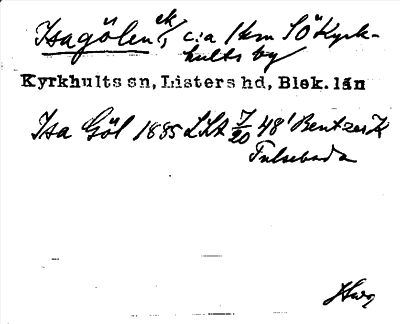 Isagölen, ek, c:a 1 km SÖ Kyrk-
hults by
Kyrkhults sn, Listers hd, Blek. län
Isa Göl 1885 LSA 7/20 48' Bentzer K
Fulseboda